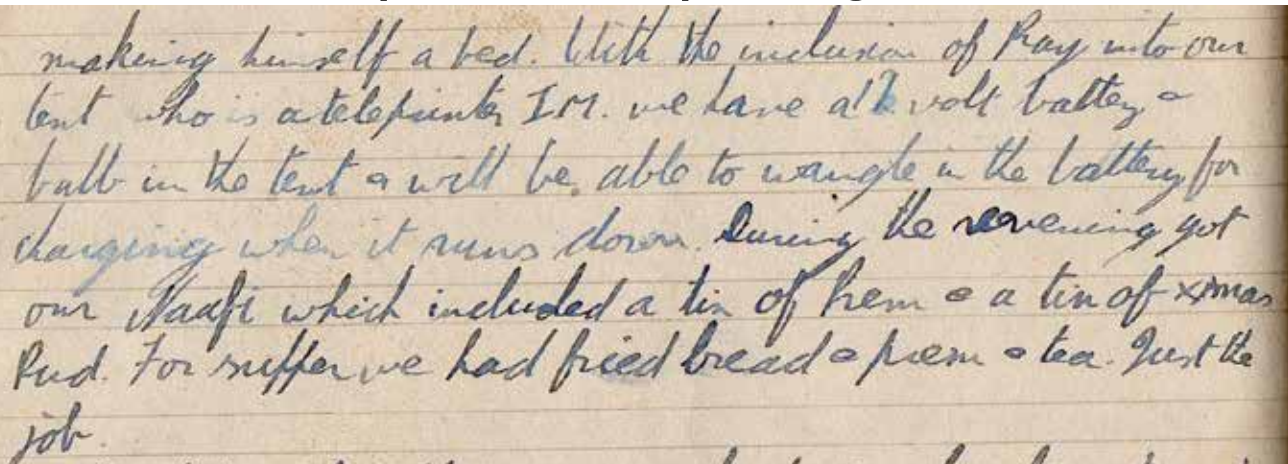 making himself a bed. With the inclusion of Ray into our
tent who is a teleprinter I.M. we have a 12 volt battery &
bulb in the tent & will be able to wangle in the battery for
charging when it runs down. During the evening got
our Naafi which included a tin of Prem & a tin of Xmas
Pud. For supper we had fried bread & prem & tea. Just the
job.